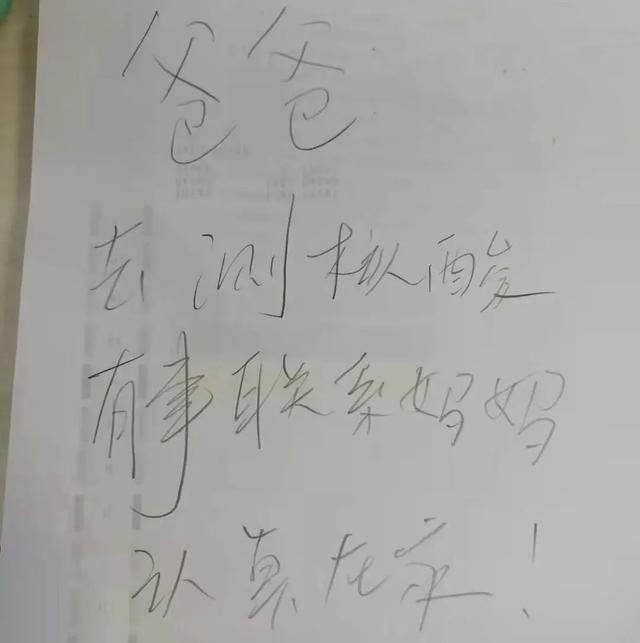 爸爸
去测核酸
有事联系妈妈
认真在家!